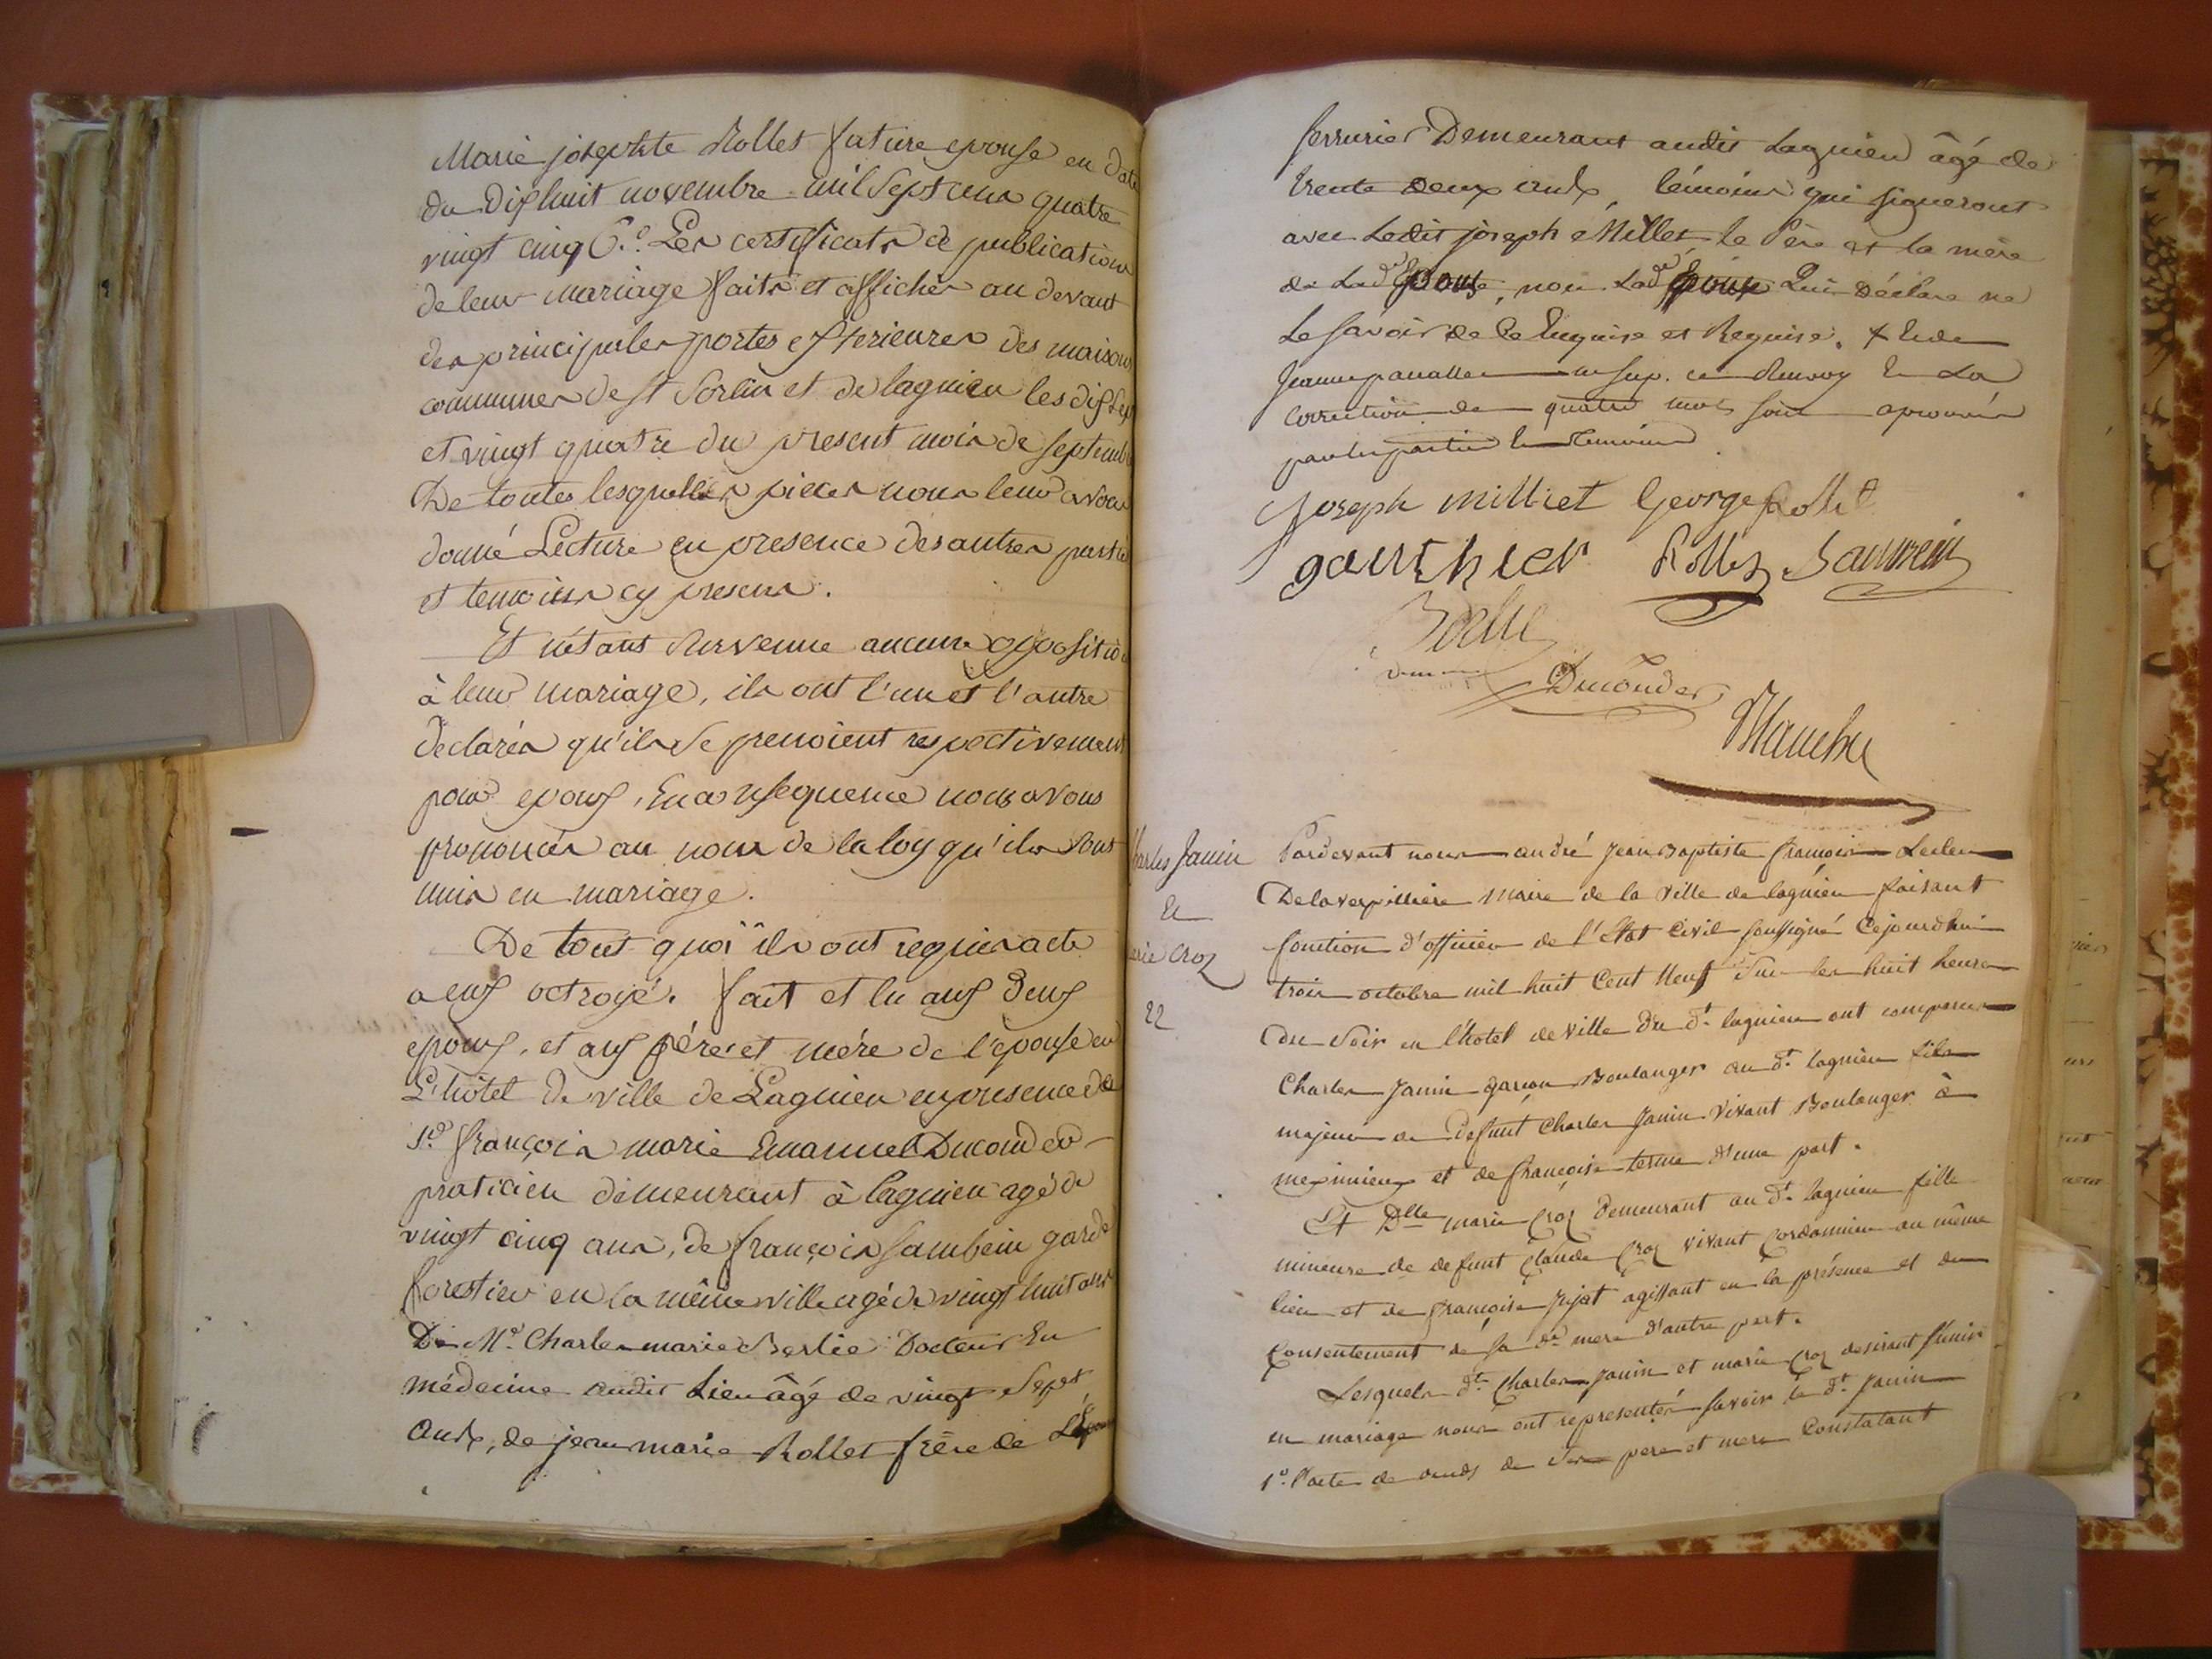 Marie josephte Rollet future epouse en date
du dixhuit novembre mil sept cens quatre
vingt cinq 6.º Les certificats de publication
de leur mariage faits et affichés au devant
des principales portes exterieures des maisons
communes de st Sorlin et de lagnieu les dix sept
et vingt quatre du present mois de septembre
De toutes lesquelles pieces nous leur avons
donné Lecture en presence des autres parties
et temoins cy presens.
Et n'étant survenue aucune opposition
à leur mariage, ils ont l'un et l'autre
declarés qu'ils se prenoient respectivement
pour epoux, En consequence nous avons
prononcés au nom de la loy qu'ils sont
unis en mariage.
De tout quoi ils ont requis acte
a eux octroyé. fait et lu aux deux
epoux, et aux pére et mére de l'épouse en
L'hôtel de ville de Lagnieu en presence de
Sr françois marie Emanuel Ducouder
praticien demeurant à lagnieu agé de
vingt cinq ans, de françois Sambein garde
forestier en la même ville agé de vingt huit ans
De Mr. Charles marie Berlie Docteur En
médecine audit Lieu âgé de vingt Sept
ands, de jean marie Rollet frère de L'Epouse
serrurier Demeurant audit Lagnieu âgé de
trente deux ands, témoins qui signeront
avec Ledit joseph Millet le Père et la mère
de Lade Epouse, non Lade Epouse Qui Déclare ne
Le savoir de ce Enquise et Requise. +
Correction de quatre mots sont aprouvés
par les parties Et Temoins
Joseph milliet George Rollet
gauthier Rollet
Ducouder
Charles Janin
Et
marie Croz
22
Pardevant nous andré Jean Baptiste françois Leclerc
Delaverpilliere maire de la ville de lagnieu faisant
fonction d'officier de l'Etat Civil soussigné Cejourdhui
trois octobre mil huit Cent Neuf sur les huit heures
du soir en l'hotel de ville du dt lagnieu ont comparus
Charles Janin garçon Boulanger au dt lagnieu fils
majeur de Defunt Charles Janin vivant Boulanger à
meximieux et de françoise terme d'une part.
Et Dlle marie Croz demeurant au dt lagnieu fille
mineure de defunt Claude Croz vivant Cordonnier au même
lieu et de françoise Jujat agissant en la présence et du
Consentement de sa de mere d'autre part.
Lesquels dts Charles Janin et marie Croz desirant s'unir
en mariage nous ont representés savoir le dt Janin
1º. l'acte de deces de ses pere et mere Constatant